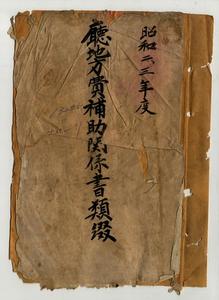 昭和二三年度
廳地方費補助関係書類綴